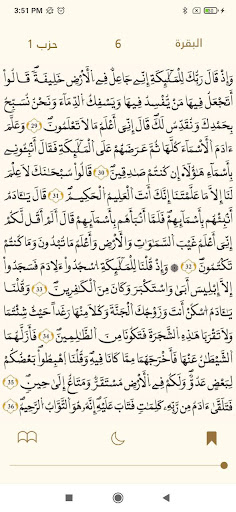 3:51 PM
البقرة 6 حزب 1
وَإِذْ قَالَ رَبُّكَ لِلْمَلَٰٓئِكَةِ إِنِّى جَاعِلٌ فِى ٱلْأَرْضِ خَلِيفَةً قَالُوٓا۟
أَتَجْعَلُ فِيهَا مَن يُفْسِدُ فِيهَا وَيَسْفِكُ ٱلدِّمَآءَ وَنَحْنُ نُسَبِّحُ
بِحَمْدِكَ وَنُقَدِّسُ لَكَ قَالَ إِنِّىٓ أَعْلَمُ مَا لَا تَعْلَمُونَ 29 وَعَلَّمَ
ءَادَمَ ٱلْأَسْمَآءَ كُلَّهَا ثُمَّ عَرَضَهُمْ عَلَى ٱلْمَلَٰٓئِكَةِ فَقَالَ أَنۢبِـُٔونِى
بِأَسْمَآءِ هَٰٓؤُلَآءِ إِن كُنتُمْ صَٰدِقِينَ 30 قَالُوا۟ سُبْحَٰنَكَ لَا عِلْمَ
لَنَآ إِلَّا مَا عَلَّمْتَنَآ إِنَّكَ أَنتَ ٱلْعَلِيمُ ٱلْحَكِيمُ 31 قَالَ يَٰٓـَٔادَمُ
أَنۢبِئْهُم بِأَسْمَآئِهِمْ فَلَمَّآ أَنۢبَأَهُم بِأَسْمَآئِهِمْ قَالَ أَلَمْ أَقُل لَّكُمْ
إِنِّىٓ أَعْلَمُ غَيْبَ ٱلسَّمَٰوَٰتِ وَٱلْأَرْضِ وَأَعْلَمُ مَا تُبْدُونَ وَمَا كُنتُمْ
تَكْتُمُونَ 32 وَإِذْ قُلْنَا لِلْمَلَٰٓئِكَةِ ٱسْجُدُوا۟ لِـَٔادَمَ فَسَجَدُوٓا۟
إِلَّآ إِبْلِيسَ أَبَىٰ وَٱسْتَكْبَرَ وَكَانَ مِنَ ٱلْكَٰفِرِينَ 33 وَقُلْنَا
يَٰٓـَٔادَمُ ٱسْكُنْ أَنتَ وَزَوْجُكَ ٱلْجَنَّةَ وَكُلَا مِنْهَا رَغَدًا حَيْثُ شِئْتُمَا
وَلَا تَقْرَبَا هَٰذِهِ ٱلشَّجَرَةَ فَتَكُونَا مِنَ ٱلظَّٰلِمِينَ 34 فَأَزَلَّهُمَا
ٱلشَّيْطَٰنُ عَنْهَا فَأَخْرَجَهُمَا مِمَّا كَانَا فِيهِ وَقُلْنَا ٱهْبِطُوا۟ بَعْضُكُمْ
لِبَعْضٍ عَدُوٌّ وَلَكُمْ فِى ٱلْأَرْضِ مُسْتَقَرٌّ وَمَتَٰعٌ إِلَىٰ حِينٍ 35
فَتَلَقَّىٰٓ ءَادَمُ مِن رَّبِّهِۦ كَلِمَٰتٍ فَتَابَ عَلَيْهِ إِنَّهُۥ هُوَ ٱلتَّوَّابُ ٱلرَّحِيمُ 36